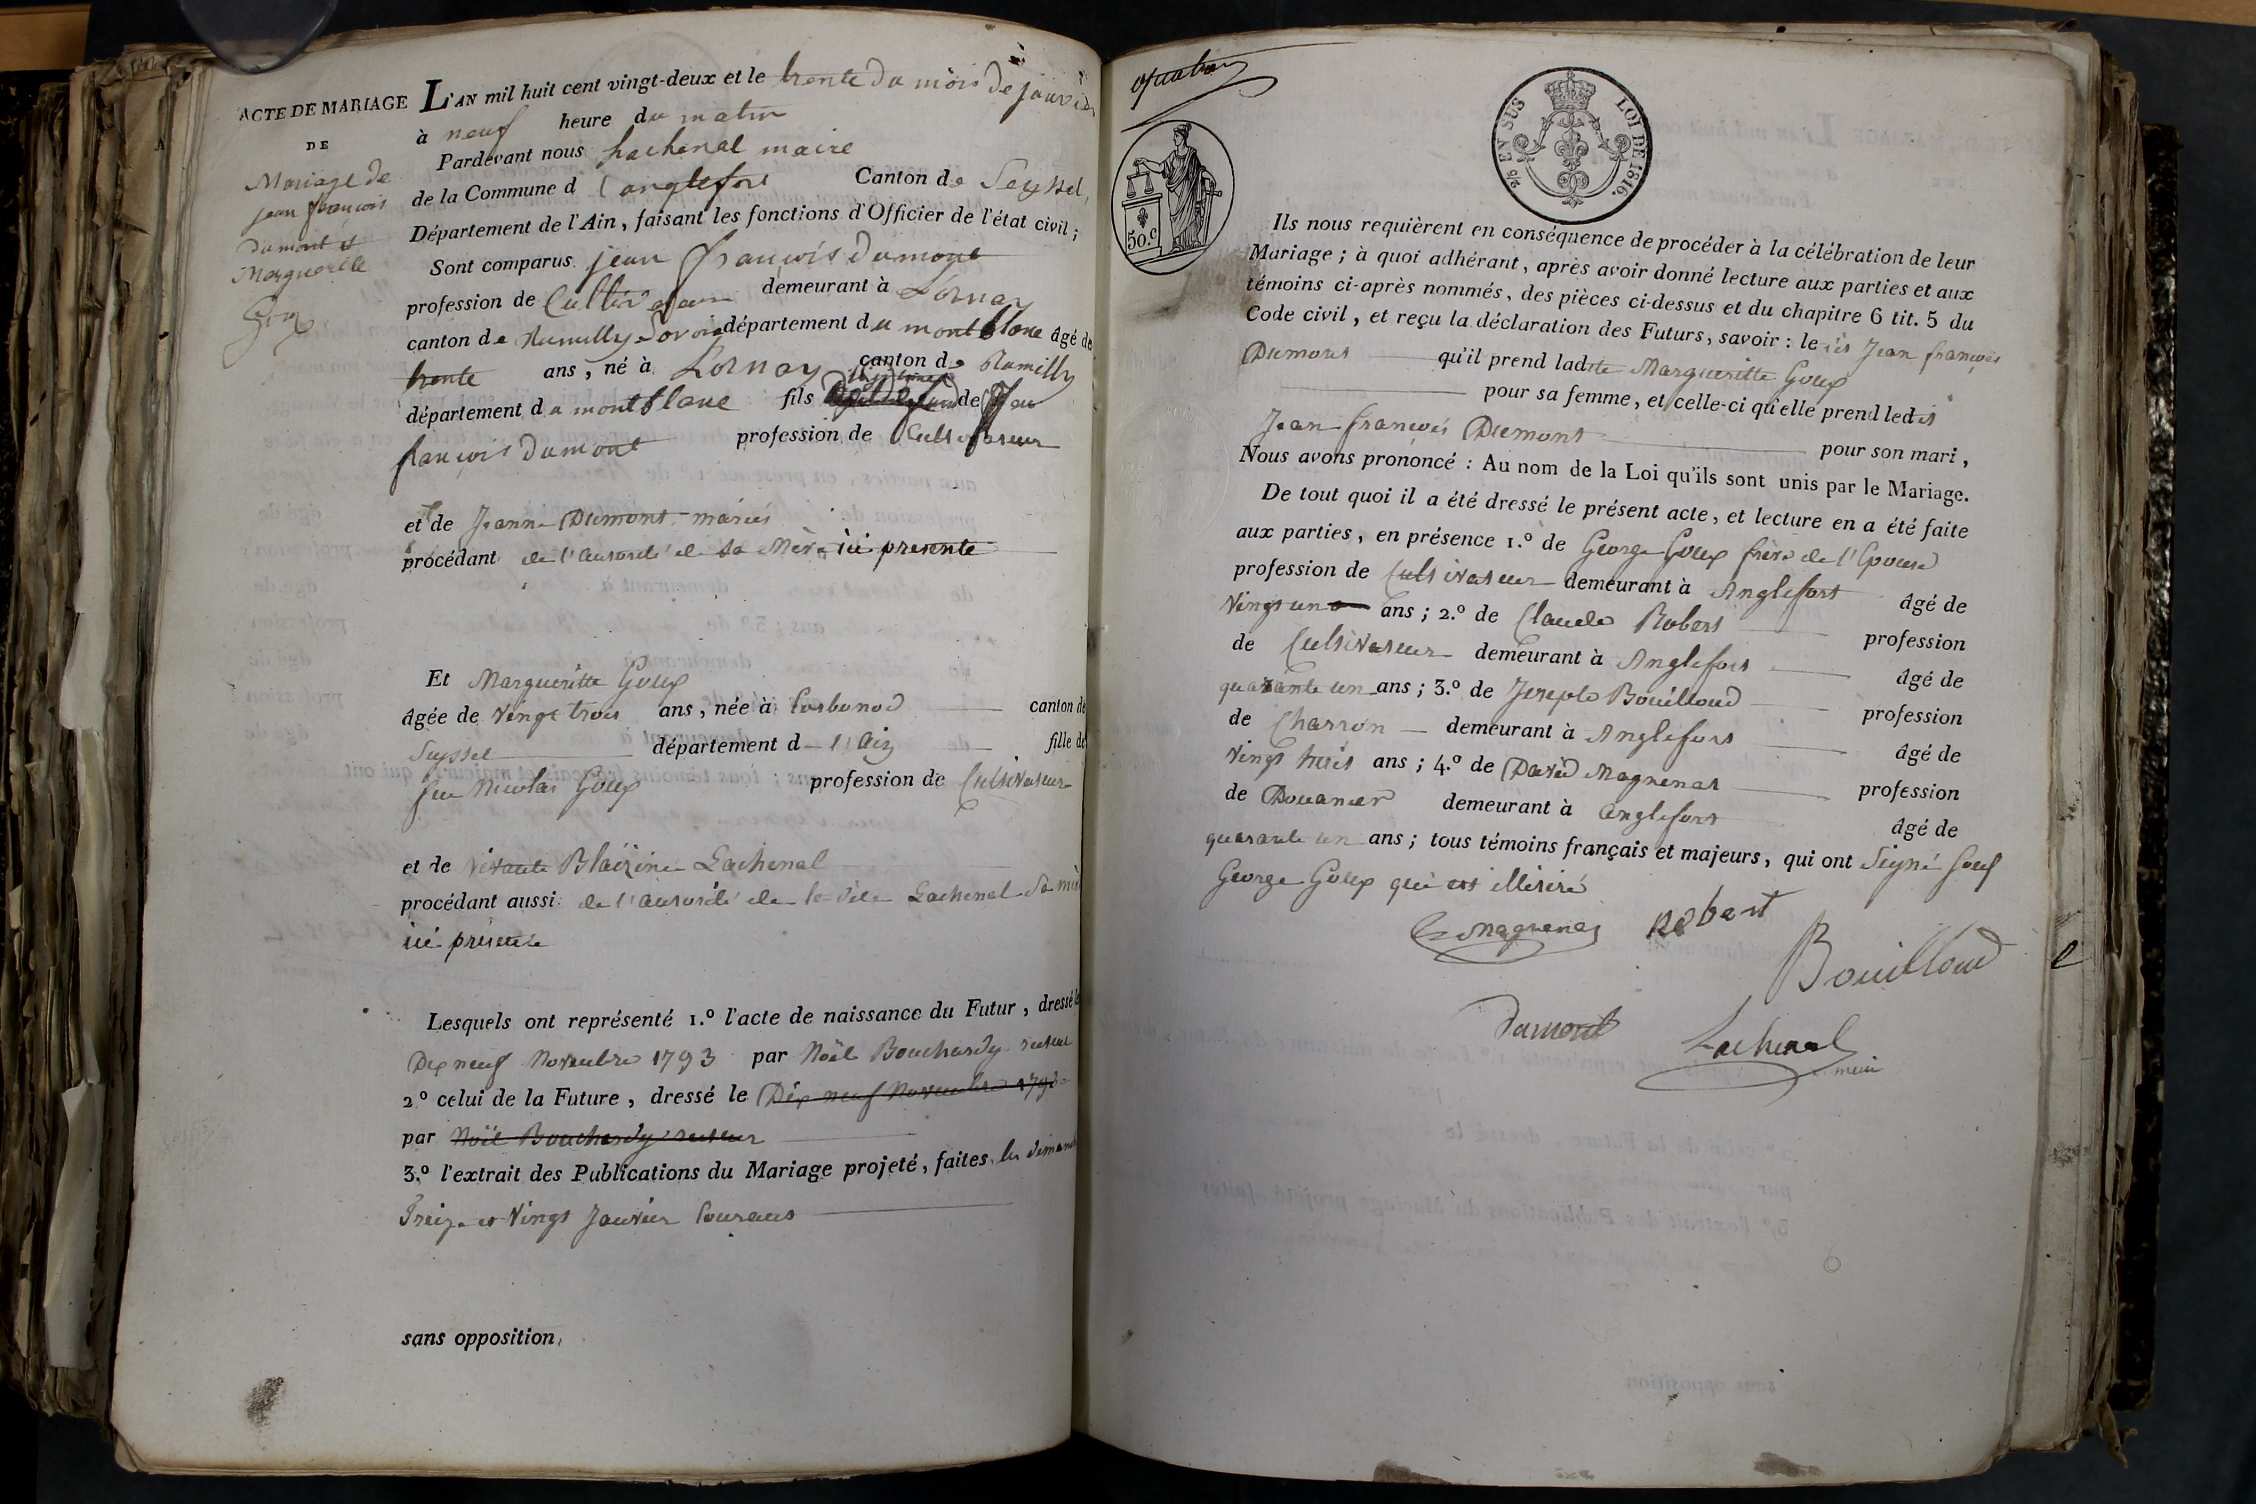 ACTE DE MARIAGE
DE
Mariage de
jean françois
dumont et
Marguerite
Goux
L'AN mil huit cent vingt-deux et le trente du mois de janvier
à neuf heure du matin
Pardevant nous Lachenal maire
de la Commune d'anglefort Canton de Seyssel,
Département de l'Ain, faisant les fonctions d'Officier de l'état civil;
Sont comparus jean françois dumont
profession de Cultivateur demeurant à Lornay
canton de Rumilly Savoie département du montblanc âgé de
trente ans, né à Lornay canton de Rumilly
département du montblanc fils de feu
françois dumont profession de Cultivateur
et de Jeanne Dumont mariés
procédant de l'autorité de sa Mère ici presente
Et Margueritte Goux
âgée de vingt trois ans, née à Corbonod canton de
Seyssel département d l'Ain fille de
feu Nicolas Goux profession de Cultivateur
et de vivante Blaizine Lachenal
procédant aussi de l'autorité de la dite Lachenal sa mère
ici presente
Lesquels ont représenté 1.º l'acte de naissance du Futur, dressé le
Dix neuf Novembre 1793 par Noël Bouchardy recteur
2º celui de la Future, dressé le Dix neuf Novembre 1793
par Noël Bouchardy recteur
3.º l'extrait des Publications du Mariage projeté, faites les dimanches
Treize et vingt Janvier Courant
sans opposition.
quatre
50.C
2/5 EN SUS LOI DE 1816.
Ils nous requièrent en conséquence de procéder à la célébration de leur
Mariage; à quoi adhérant, après avoir donné lecture aux parties et aux
témoins ci-après nommés, des pièces ci-dessus et du chapitre 6 tit. 5 du
Code civil, et reçu la déclaration des Futurs, savoir: le dit Jean françois
Dumont qu'il prend ladite Margueritte Goux
pour sa femme, et celle-ci qu'elle prend ledit
Jean françois Dumont pour son mari,
Nous avons prononcé: Au nom de la Loi qu'ils sont unis par le Mariage.
De tout quoi il a été dressé le présent acte, et lecture en a été faite
aux parties, en présence 1.º de George Goux frère de l'Epouse
profession de Cultivateur demeurant à Anglefort âgé de
vingt un ans; 2.º de Claude Robert profession
de Cultivateur demeurant à Anglefort âgé de
quarante un ans; 3.º de Joseph Bouilloud profession
de Charron demeurant à Anglefort âgé de
vingt trois ans; 4.º de David Magnenat profession
de Douanier demeurant à anglefort âgé de
quarante un ans; tous témoins français et majeurs, qui ont Signé sauf
George Goux qui est illitiré
Magnenat Robert
Bouilloud
Dumont
Lachenal
maire